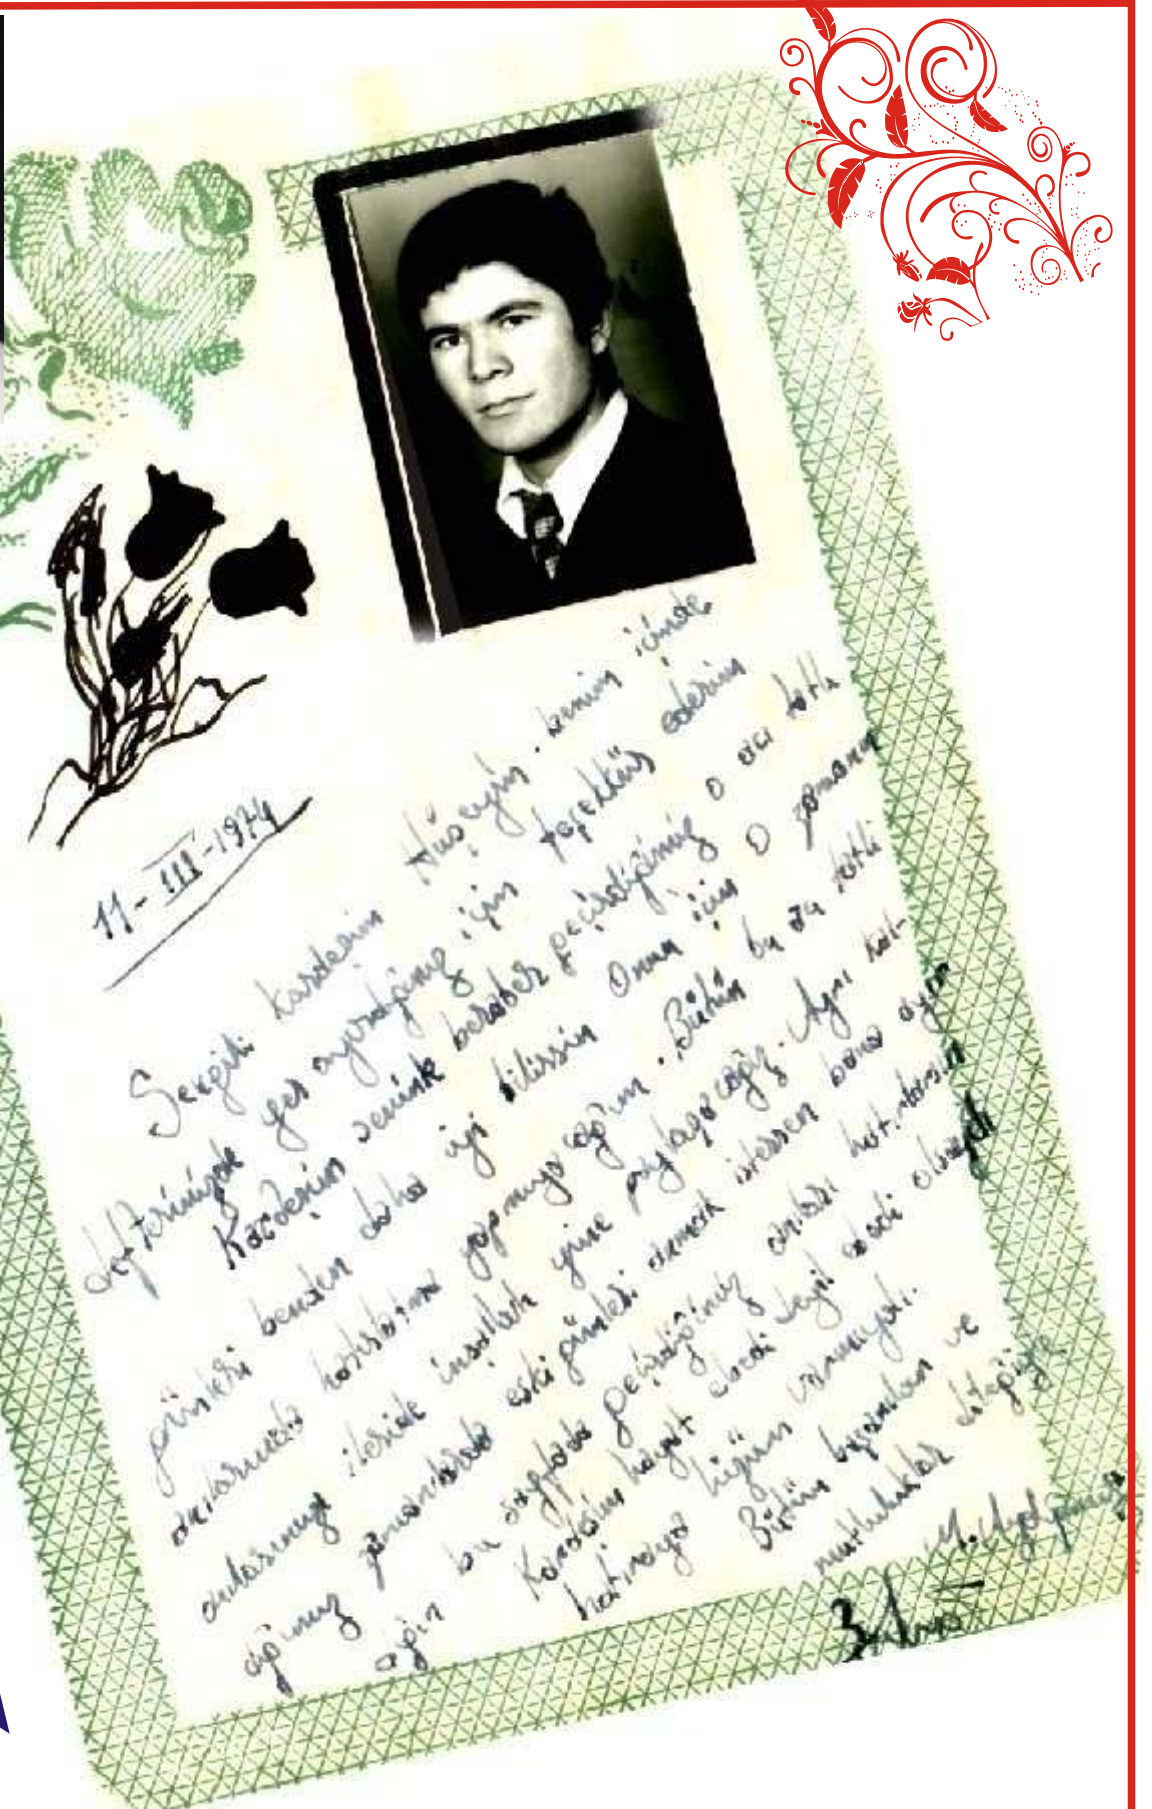 11-III-1974
Sevgili Kardeşim Hüseyin. benim içinde
defterinizde yer ayırdığınız için teşekkür ederim
Kardeşim senink beraber geçirdiğimiz o acı tatlı
günleri benden daha iyi bilirsin Onun için O zamanın
anılarımızı hatıratına yazmıyacağım. Bütün bu acı tatlı
anılarımızı ileride inşallah yine paylaşacağız. Aynı kal-
dığımız zamanlarda eski günleri anmak istersen bana ayır-
dığın bu sayfada geçirdiğimiz anıları hatırlarsın
Kardeşim hayat ebedi değil ebedi olsaydı
hatıraya lüzum varmıydı.
Bütün başarıların ve
mutluluklar dileğiyle